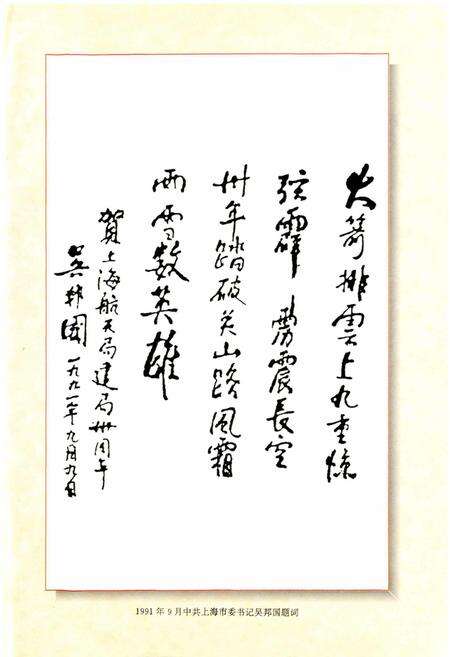 火箭排雲上九重惊
弦霹雳震長空
卅年踏破关山路風霜
雨雪数英雄
贺上海航天局建局卅周年
吴邦國 一九九一年九月九日
1991年9月中共上海市委书记吴邦国题词